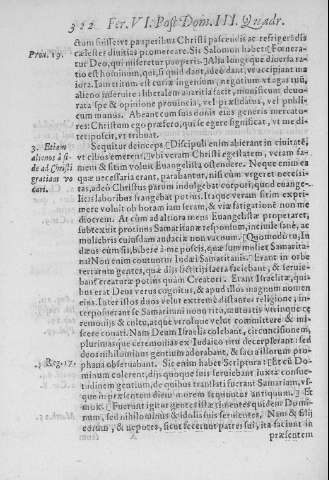 322 Fer. VI. Post Dom. III. Quadr.
ctum fuisse: vt pauperibus Christi pascendis ac refrigerãdis
Prou. 19.
caelestes diuitias promereare. Sic Salomon habet: [Foenera-
tur Deo, qui miseretur pauperis.] Alia longeque diuersa ra-
tio est hominum, qui, si quid dant, ideo dant, vt accipiant vel
maiora. Iam etiam nihil tam est sanctum, quod non vel
alieno inseruire: liberalem auaritia facit,
rata spe & opinione prouincia, vel praesidatus, vel publici
cum munus. Abeant cum suis donis eiusmodi merca-
tores: Christum ego praefero, qui se egere significat, vt me di-
tet posuit, vt tribuat.
3. Etiam
alienos à fi-
de ad Christi
gratiam vo
cari.
Sequitur deinceps: [Discipuli enim abierant in ciuitatẽ,
vt cibos emerent.] Vbi veram Christi egestatem, veram fa-
mem & sitim voluit Euangelista ostendere. Neque enim ea
quae necessaria erant, parabantur, nisi cùm vrgeret necessi-
tas, adeò Christus parum indulgebat corpori, quod euange-
licis laboribus frangebat potius. Itaque veram sitim expri-
mere voluit ob horam iam sextam, & viae fatigationẽ non me
diocrem. At cùm ad altiora mens Euangelistae properaret,
subtexit protinus Samaritanae responsum, incipit sanè, ac
muliebris cuiusdam audaciae non vacuum. [Quomodo tu, Iu-
daeus cùm sis, bibere à me poscis, quae sum mulier Samarita-
na? Non enim coutuntur Iudaei Samaritanis.] Erant in orbe
terrarum gentes, quae diis fictitiis sacra faciebant, & seruie-
bant creaturae potius quàm Creatori. Erant Israëlitae, qui-
bus erat Deus verus cognitus, & apud illos magnum nomen
eius. Inter illos duos velut extremè distantes religione, in-
terposuere se Samaritani nouo ritu,
te vtrumque velut committere & mi-
scere conati. Nam Deum Israël is colebant, circuncisionem,
plurimasque ceremonias ex Iudaico ritu decerpserant: sed
deos nihilominus gentium adorabant, & sacra illorum pro-
4. Reg. 17.
phana obseruabant. Sic enim habet Scriptura: [Et cùm Do-
minum colerent, diis quoque suis seruiebant iuxta con-
suetudinem gentium, de quibus translati fuerant Samariam, vs-
que in praesentem diem morem sequuntur antiquum.] Et
mox: [Fuerunt igitur gentes istae timentes quidem Domi-
num, sed nihilominus & idolis suis seruientes. Nam & filij
eorum, & nepotes, sicut fecerunt patres sui, ita faciunt in
praesentem